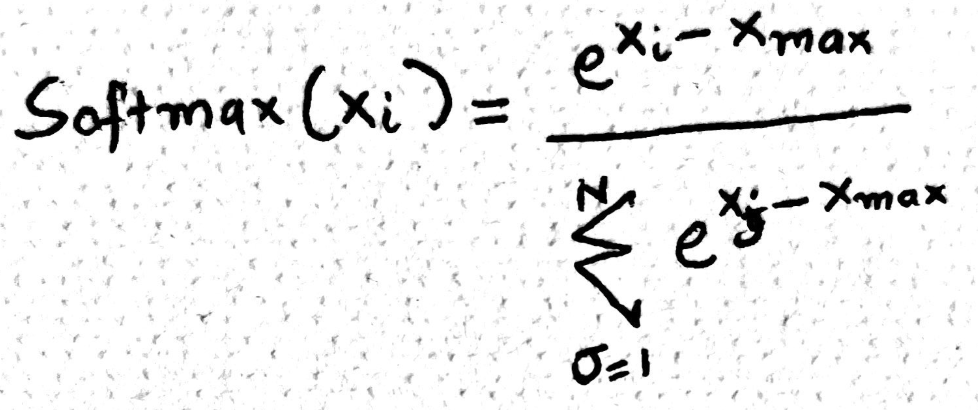 Softmax(xᵢ) = e^(xᵢ - x_max) / ∑_(σ=1)^N e^(xⱼ - x_max)